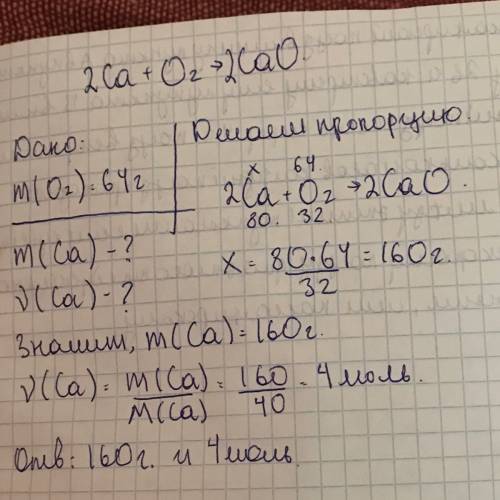 2Ca + O₂ → 2CaO.
Дано:
m(O₂) = 64г
m(Ca) - ?
ν(Ca) - ?
Делаем пропорцию.
x 64.
2Ca + O₂ → 2CaO.
80. 32.
x = 80·64/32 = 160г.
Значит, m(Ca) = 160г.
ν(Ca) = m(Ca)/M(Ca) = 160/40 = 4 моль.
Отв: 160г. и 4 моль.